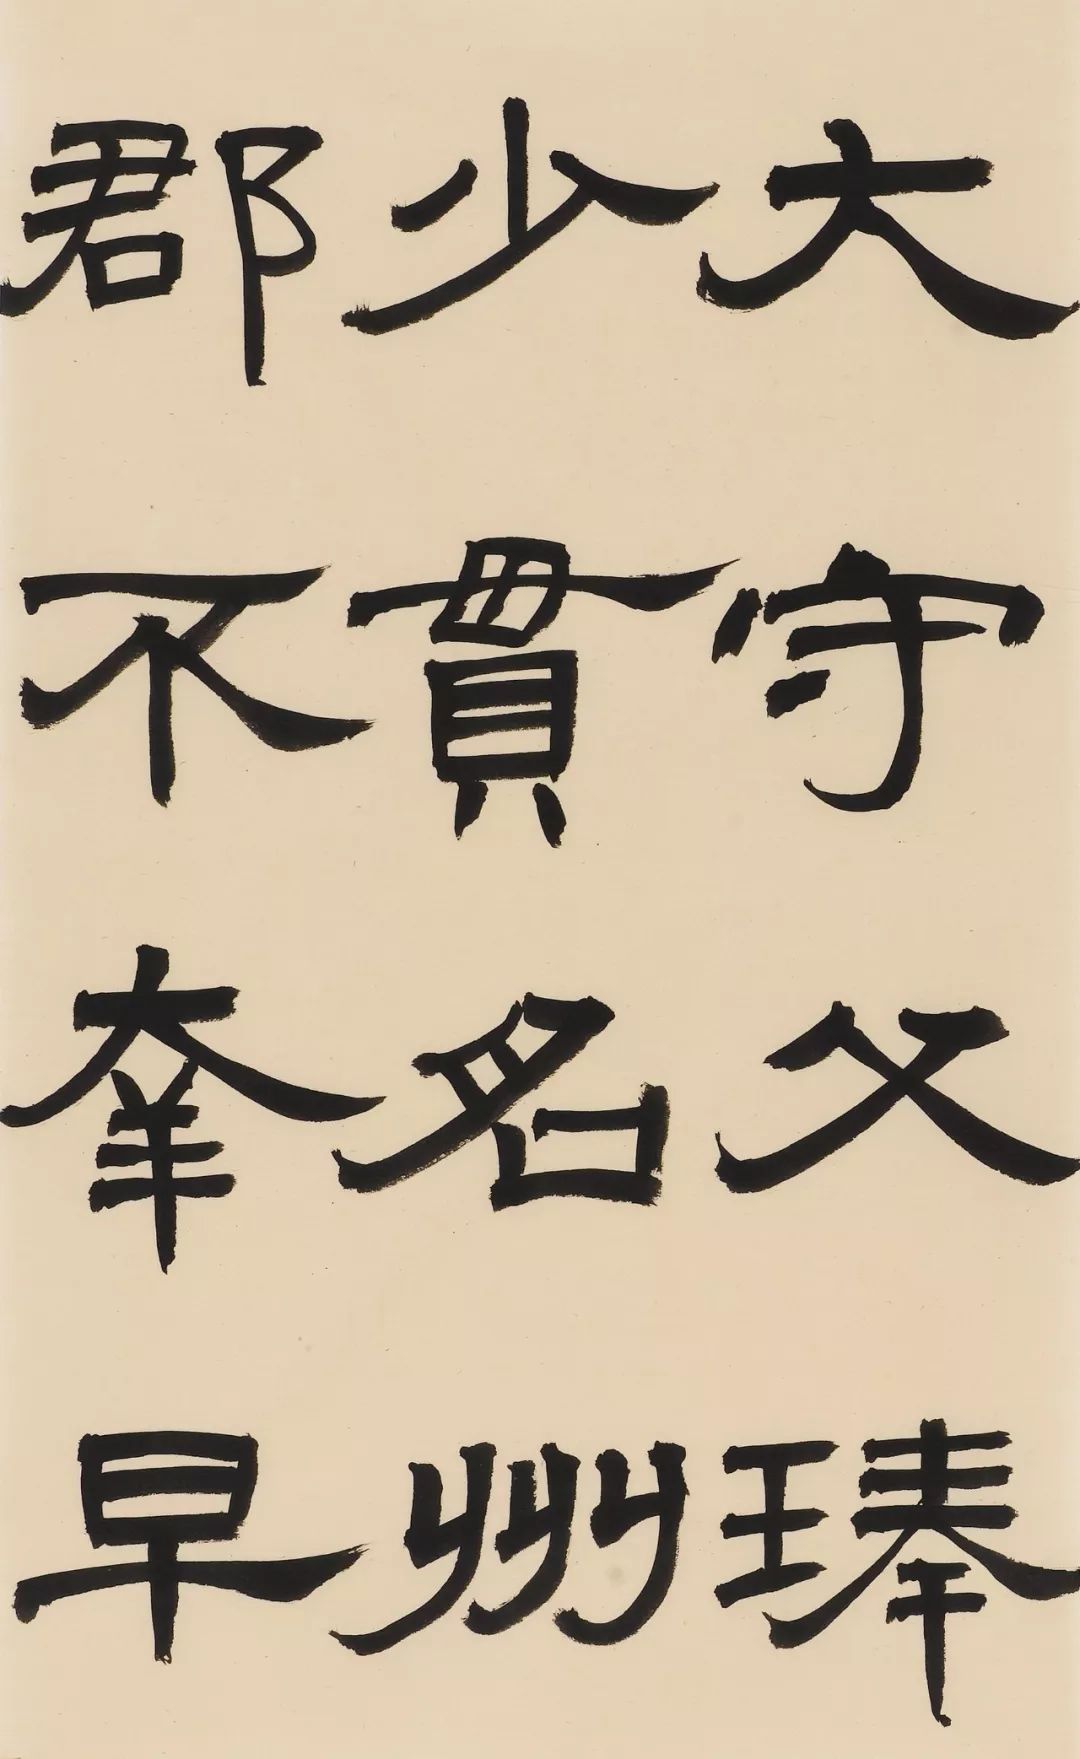 大守父琫
少貫名州
郡不幸早